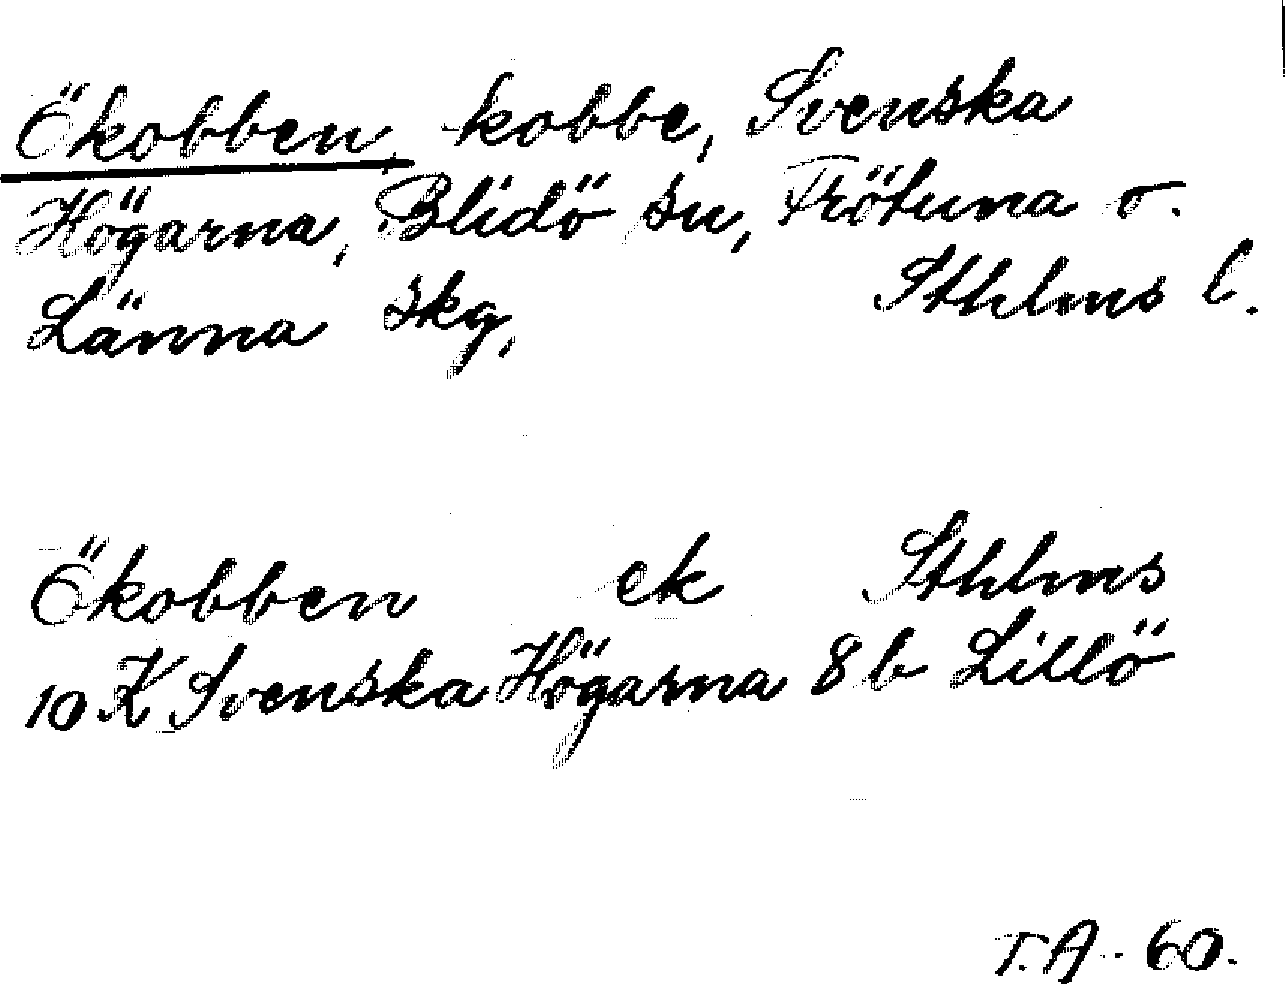 Ökobben, kobbe, Svenska
Högarna, Blidö sn, Frötuna o.
Länna skg, Sthlms l.
Ökobben ek Sthlms
10 K Svenska Högarna 8 b Lillö
T.A. 60.